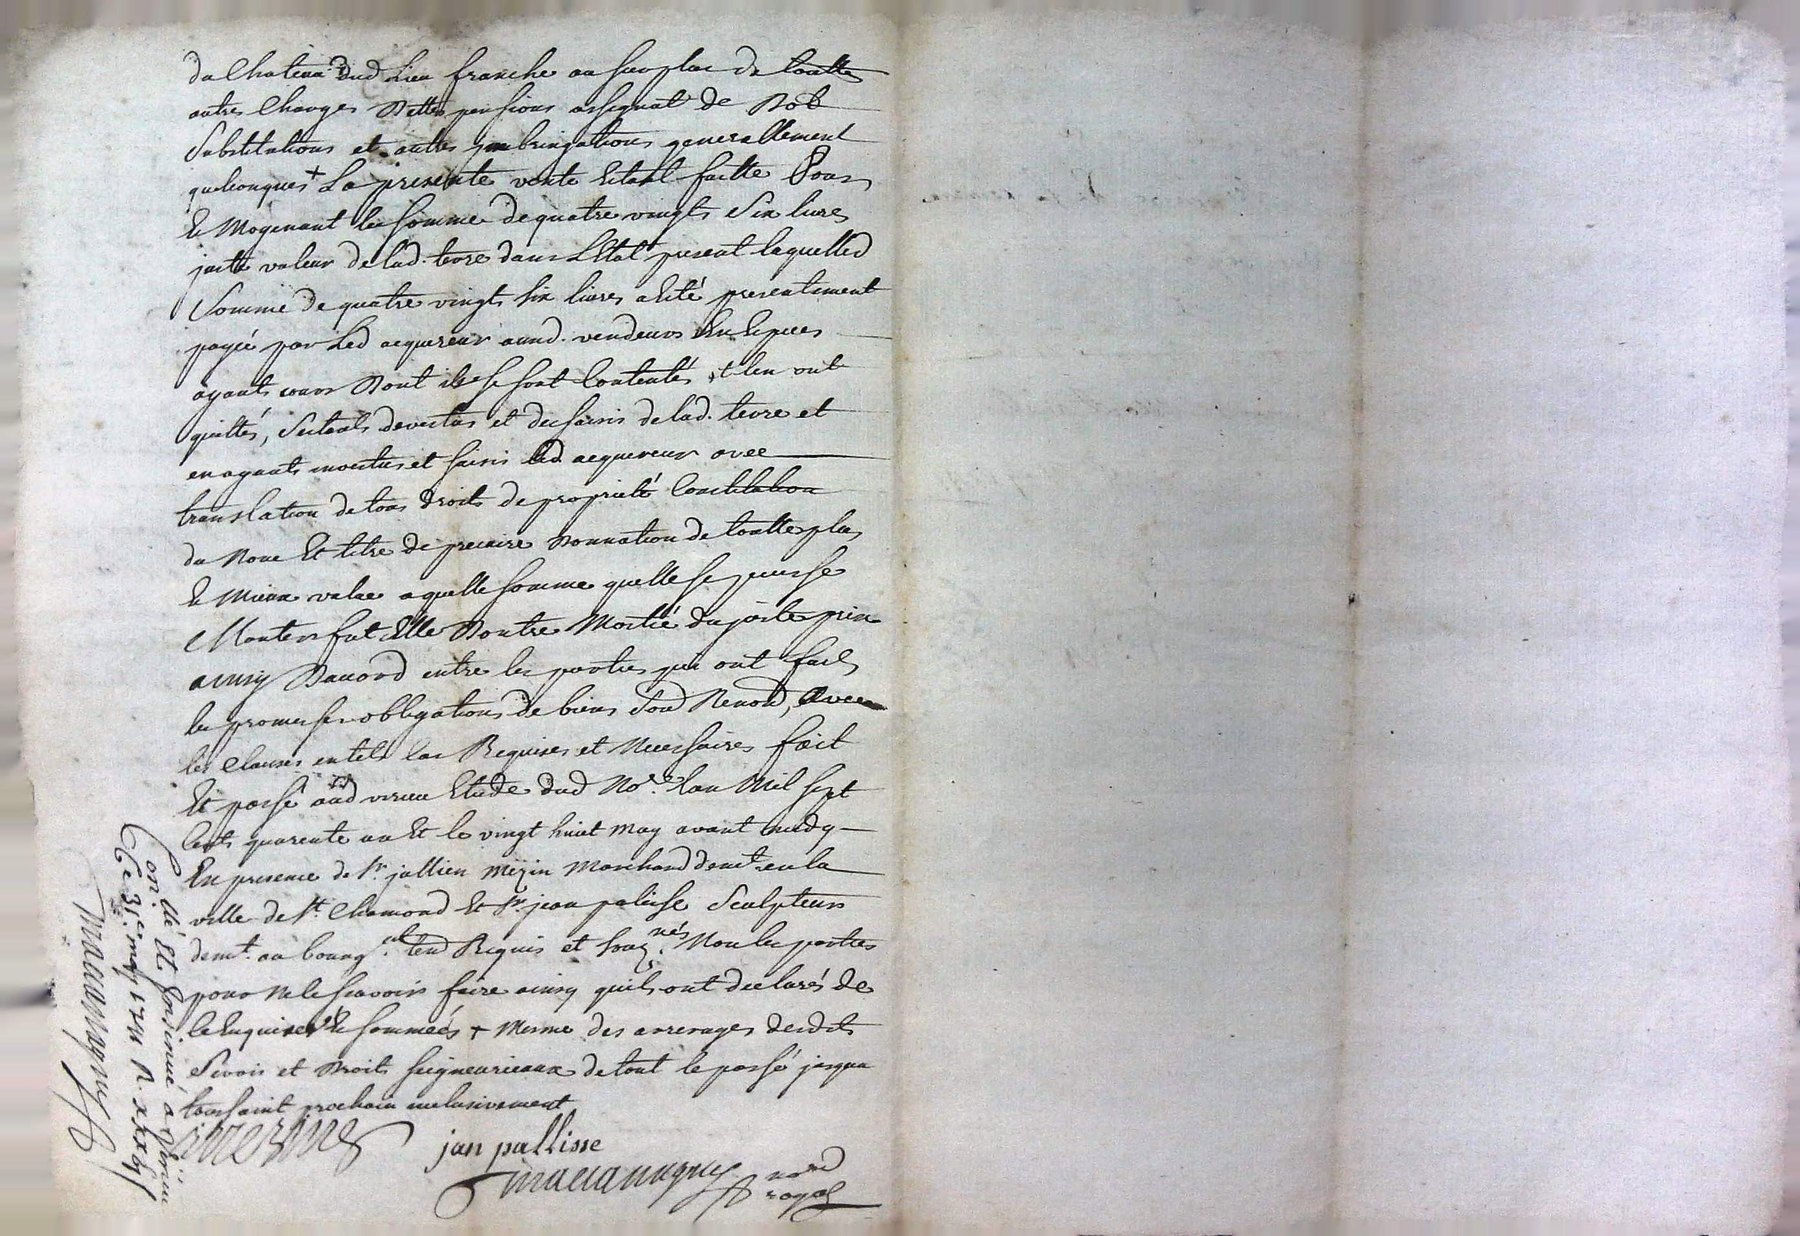 du Chateau dud Lieu franche au surplus de toutte
autres Charges Dettes pensions assignat de Dot
Substitutions et autres imbringations generallement
quelconques + La presente vente Etant faitte Pour
Et Moyenant la Somme de quatre vingts Six livres
juste valeur de lad. terre dans L'Etat present laquelle
Somme de quatre vingts six livres a Eté presentement
payée par Led acquereur auxd. vendeurs En Especes
ayants cours Dont ils se sont Contentés, et len ont
quittés, Sestants devestus et dessaisis de lad. terre et
en ayants investus et saisis led. acquereur avec
translation de tous droits de proprieté Constitution
du Nom Et titre de precaire Donnation de toutte plus
Et Mieux value a quelle somme quelle se puisse
Monter fut Elle Doutre Moitié du juste prix
ainsy Daccord entre les parties qui ont fait
les promesses obligations de biens Soud Renond, Avec
les Clauses en tels cas Requises et Necessaires fait
Et passé aud virieu Etude dud No.re Lan Mil sept
Cents quarente un Et le vingt huit may avant midy
En presence de Sr jullien mezin Marchand demt. en la
ville de St. Chamond Et Sr. jean palisse Sculpteur
demt. au bourg Requis et souz.nés Non les parties
pour ne le scavoir faire ainsy quils ont declarés de
ce Enquises Et sommées + Mesme des arrerages desdits
Servis et Droits seigneuriaux de tout le passé jusqua
toussaint prochain inclusivement
jan pallisse
no.re
royal
Con.lé Et Insinué a virieu
Ce 31e. may 1741 R.